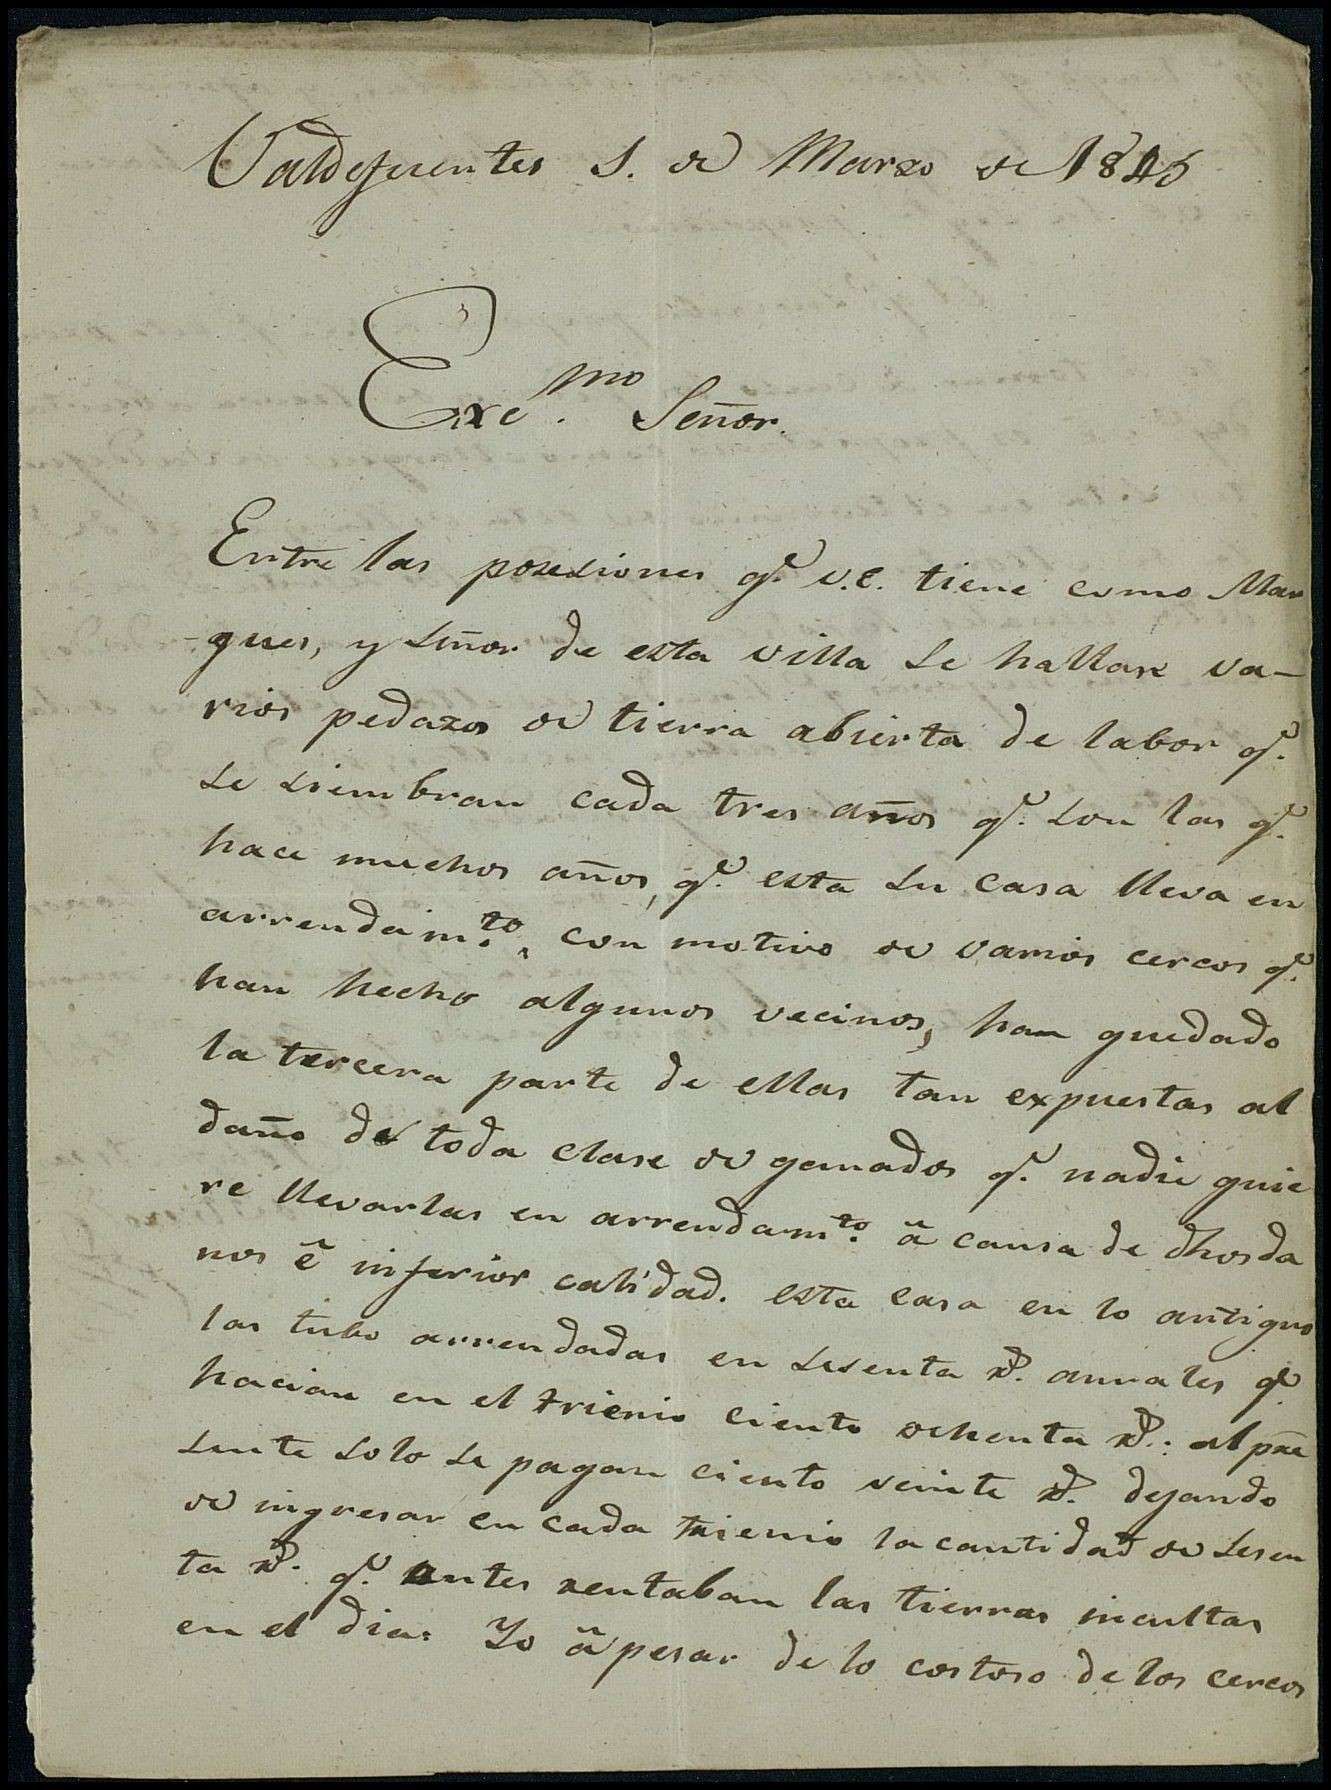 Valdefuentes 1. de Marzo de 1845
Exc.mo Señor.
Entre las posesiones q.e V.E. tiene como Mar
ques, y Señor de esta villa se hallan va-
rios pedazos de tierra abierta de labor q.e
se siembran cada tres años q.e son las q.e
hace muchos años, q.e esta su casa lleva en
arrendam.to, con motivo de varios cercos q.e
han hecho algunos vecinos, han quedado
la tercera parte de ellas tan expuestas al
daño de toda clase de ganados q.e nadie quie
re llevarlas en arrendam.to â causa de dhos da
nos ê inferior calidad. esta casa en lo antiguo
las tubo arrendadas en sesenta r.s anuales q.e
hacian en el trienio ciento ochenta r.s: al pre
sente solo se pagan ciento veinte r.s dejando
de ingresar en cada trienio la cantidad de sesen
ta r.s q.e antes rentaban las tierras incultas
en el dia: Yo â pesar de lo costoso de los cercos